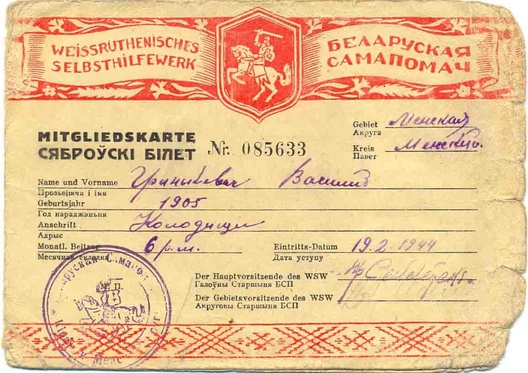 WEISSRUTHENISCHES
SELBSTHILFEWERK
БЕЛАРУСКАЯ
САМАПОМАЧ
MITGLIEDSKARTE
СЯБРОЎСКІ БІЛЕТ Nr. 085633
Gebiet Менская
Акруга
Kreis Менскі
Павет
Name und Vorname Грынькевіч Васіль
Прозьвішча і імя
Geburtsjahr 1905
Год нараджэньня
Anschrift Колодищи
Адрыс
Monatl. Beitrag 6 р.м. Eintritts-Datum 19.2.1944
Месячная Дата уступу
Der Hauptvorsitzende des WSW
Галоўны Старшыня БСП
Der Gebietsvorsitzende des WSW
Акруговы Старшыня БСП